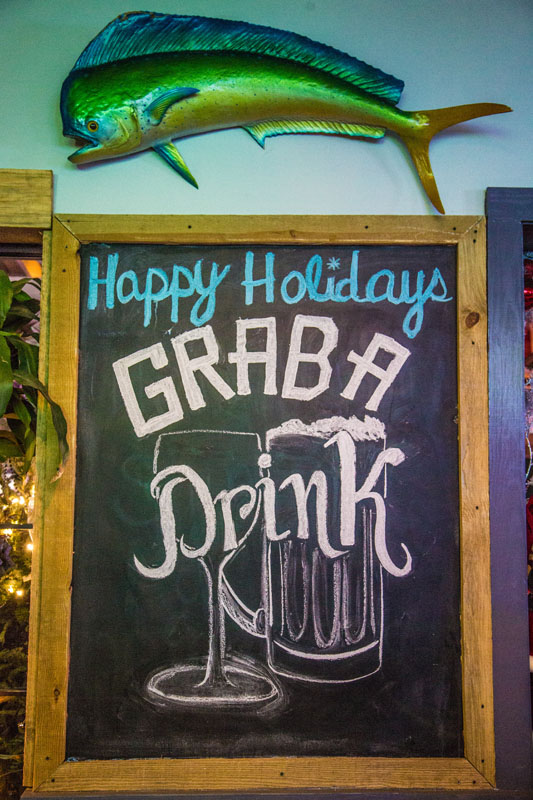 Happy Holidays
GRAB A
Drink